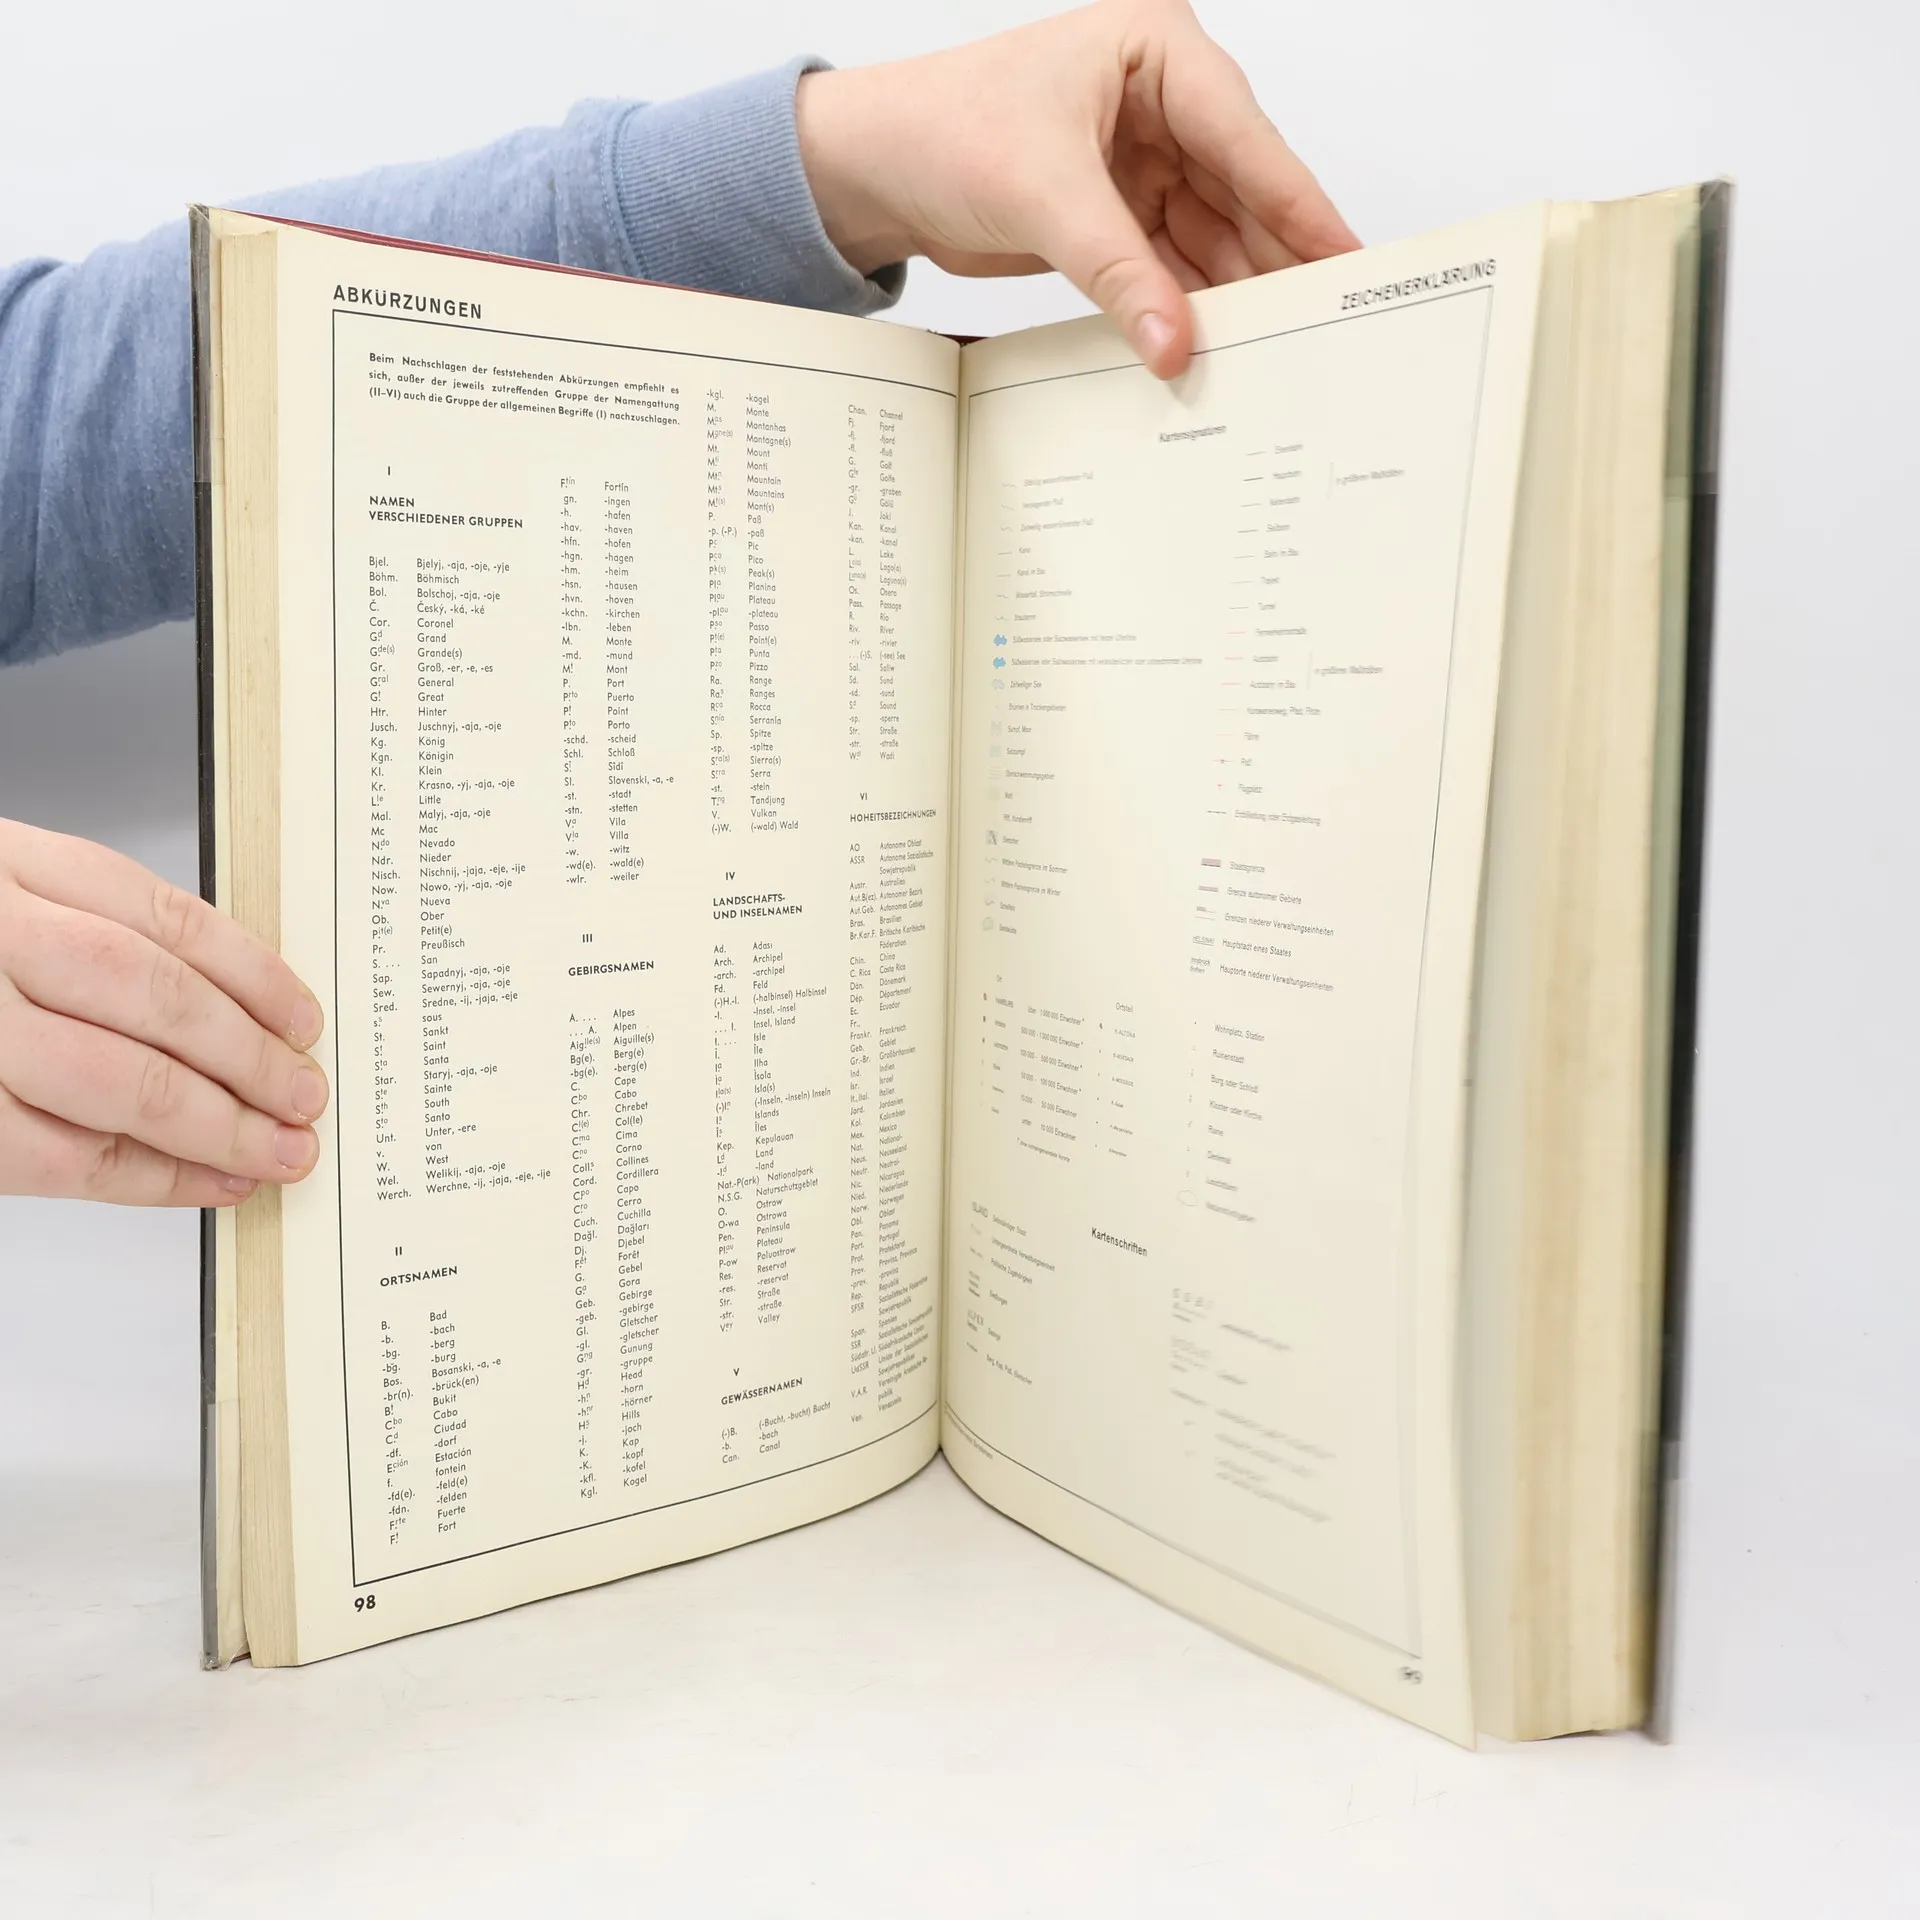 ABKÜRZUNGEN
Beim Nachschlagen der feststehenden Abkürzungen empfiehlt es
sich, außer der jeweils zutreffenden Gruppe der Namengattung
(II–VI) auch die Gruppe der allgemeinen Begriffe (I) nachzuschlagen.
I
NAMEN
VERSCHIEDENER GRUPPEN
Bjel. Bjelyj, -aja, -oje, -yje
Böhm. Böhmisch
Bol. Bolschoj, -aja, -oje
Č. Český, -ká, -ké
Cor. Coronel
Gd Grand
Gde(s) Grande(s)
Gr. Groß, -er, -e, -es
Gral General
Gt Great
Htr. Hinter
Jusch. Juschnyj, -aja, -oje
Kg. König
Kgn. Königin
Kl. Klein
Kr. Krasno, -yj, -aja, -oje
Lle Little
Mal. Malyj, -aja, -oje
Mc Mac
Ndo Nevado
Ndr. Nieder
Nisch. Nischnij, -jaja, -eje, -ije
Now. Nowo, -yj, -aja, -oje
Nva Nueva
Ob. Ober
Pit(e) Petit(e)
Pr. Preußisch
S. . . . San
Sap. Sapadnyj, -aja, -oje
Sew. Sewernyj, -aja, -oje
Sred. Sredne, -ij, -jaja, -eje
s.s sous
St. Sankt
St Saint
Sta Santa
Star. Staryj, -aja, -oje
Ste Sainte
Sth South
Sto Santo
Unt. Unter, -ere
v. von
W. West
Wel. Welikij, -aja, -oje
Werch. Werchne, -ij, -jaja, -eje, -ije
II
ORTSNAMEN
B. Bad
-b. -bach
-bg. -berg
-bg. -burg
Bos. Bosanski, -a, -e
-br(n). -brück(en)
Bt Bukit
Cbo Cabo
Cd Ciudad
-df. -dorf
Eción Estación
f. fontein
-fd(e). -feld(e)
-fdn. -felden
Frte Fuerte
Ft Fort
Ftín Fortín
gn. -ingen
-h. -hafen
-hav. -haven
-hfn. -hofen
-hgn. -hagen
-hm. -heim
-hsn. -hausen
-hvn. -hoven
-kchn. -kirchen
-lbn. -leben
M. Monte
-md. -mund
Mt Mont
P. Port
Prto Puerto
Pt Point
Pto Porto
-schd. -scheid
Schl. Schloß
Si Sidi
Sl. Slovenski, -a, -e
-st. -stadt
-stn. -stetten
Va Vila
Vla Villa
-w. -witz
-wd(e). -wald(e)
-wlr. -weiler
III
GEBIRGSNAMEN
A. . . . Alpes
. . . A. Alpen
Aiglle(s) Aiguille(s)
Bg(e). Berg(e)
-bg(e). -berg(e)
C. Cape
Cbo Cabo
Chr. Chrebet
Cl(e) Col(le)
Cma Cima
Cno Corno
Colls Collines
Cord. Cordillera
Cpo Capo
Cro Cerro
Cuch. Cuchilla
Dağl. Dağları
Dj. Djebel
Fêt Forêt
G. Gebel
Ga Gora
Geb. Gebirge
-geb. -gebirge
Gl. Gletscher
-gl. -gletscher
Gng Gunung
-gr. -gruppe
Hd Head
-hn -horn
-hnr -hörner
Hs Hills
-j. -joch
K. Kap
-K. -kopf
-kfl. -kofel
Kgl. Kogel
-kgl. -kogel
M. Monte
Mas Montanhas
Mgne(s) Montagne(s)
Mt. Mount
Mti Monti
Mtn. Mountain
Mts Mountains
Mt(s) Mont(s)
P. Paß
-p. (-P.) -paß
Pc Pic
Pco Pico
Pk(s) Peak(s)
Pla Planina
Plau Plateau
-plau -plateau
Pso Passo
Pt(e) Point(e)
Pta Punta
Pzo Pizzo
Ra. Range
Ras Ranges
Rca Rocca
Snía Serranía
Sp. Spitze
-sp. -spitze
Sra(s) Sierra(s)
Srra Serra
-st. -stein
Tng Tandjung
V. Vulkan
(-)W. (-wald) Wald
IV
LANDSCHAFTS-
UND INSELNAMEN
Ad. Adası
Arch. Archipel
-arch. -archipel
Fd. Feld
(-)H.-I. (-halbinsel) Halbinsel
-I. -Insel, -insel
. . . I. Insel, Island
I. . . . Isle
Î. Île
Ia Ilha
Ia Isola
Ila(s) Isla(s)
(-)In (-Inseln, -inseln) Inseln
Is Islands
Îs Îles
Kep. Kepulauan
Ld Land
-ld -land
Nat.-P(ark) Nationalpark
N.S.G. Naturschutzgebiet
O. Ostrow
O-wa Ostrowa
Pen. Peninsula
Plau Plateau
P-ow Poluostrow
Res. Reservat
-res. -reservat
Str. Straße
-str. -straße
Vey Valley
V
GEWÄSSERNAMEN
(-)B. (-Bucht, -bucht) Bucht
-b. -bach
Can. Canal
Chan. Channel
Fj. Fjord
-fj. -fjord
-fl. -fluß
G. Golf
Gfe Golfe
-gr. -graben
J. Joki
Kan. Kanal
-kan. -kanal
L. Lake
Lago(a)
Laguna(s)
Os. Osero
Pass. Passage
R. Rio
Riv. River
-riv. -rivier
. . . (-)S. (-see) See
Sal. Saliw
Sd. Sund
-sd. -sund
Sd Sound
-sp. -sperre
Str. Straße
-str. -straße
Wadi
VI
HOHEITSBEZEICHNUNGEN
AO Autonome Oblast
ASSR Autonome Sozialistische
Sowjetrepublik
Austr. Australien
Aut.B(ez). Autonomer Bezirk
Aut.Geb. Autonomes Gebiet
Bras. Brasilien
Br.Kar.F. Britische Karibische
Föderation
Chin. China
C. Rica Costa Rica
Dän. Dänemark
Dép. Département
Ec. Ecuador
Fr.,
Frankr. Frankreich
Geb. Gebiet
Gr.-Br. Großbritannien
Ind. Indien
Isr. Israel
It., Ital. Italien
Jord. Jordanien
Kol. Kolumbien
Mex. Mexico
Nat. National-
Neus. Neuseeland
Neutr. Neutral-
Nic. Nicaragua
Nied. Niederlande
Norw. Norwegen
Obl. Oblast
Pan. Panama
Port. Portugal
Prot. Protektorat
Prov. Province, Provinz
-prov. -provinz
Rep. Republik
SFSR Sozialistische Föderative
Sowjetrepublik
Span. Spanien
SSR Sozialistische Sowjetrepublik
Südafr. U. Südafrikanische Union
UdSSR Union der Sozialistischen
Sowjetrepubliken
V.A.R. Vereinigte Arabische Re-
publik
Ven. Venezuela
98
ZEICHENERKLÄRUNG
Kartensignaturen
Kanal
Kanal im Bau
Zeitweiliger See
Sumpf, Moor
Gletscher
Eisenbahn
Seilbahn
Bahn im Bau
Tunnel
Autobahn
Autobahn im Bau
Fähre
Paß
Flugplatz
Erdölleitung oder Erdgasleitung
Staatsgrenze
Grenze autonomer Gebiete
Grenzen niederer Verwaltungseinheiten
HELSINKI Hauptstadt eines Staates
Hauptorte niederer Verwaltungseinheiten
Ort
Ortsteil
über 1 000 000 Einwohner
500 000 - 1 000 000 Einwohner
100 000 - 500 000 Einwohner
50 000 - 100 000 Einwohner
10 000 - 50 000 Einwohner
unter 10 000 Einwohner
Wohnplatz, Station
Ruinenstadt
Burg oder Schloß
Kloster oder Kirche
Ruine
Denkmal
Leuchtturm
Kartenschriften
99